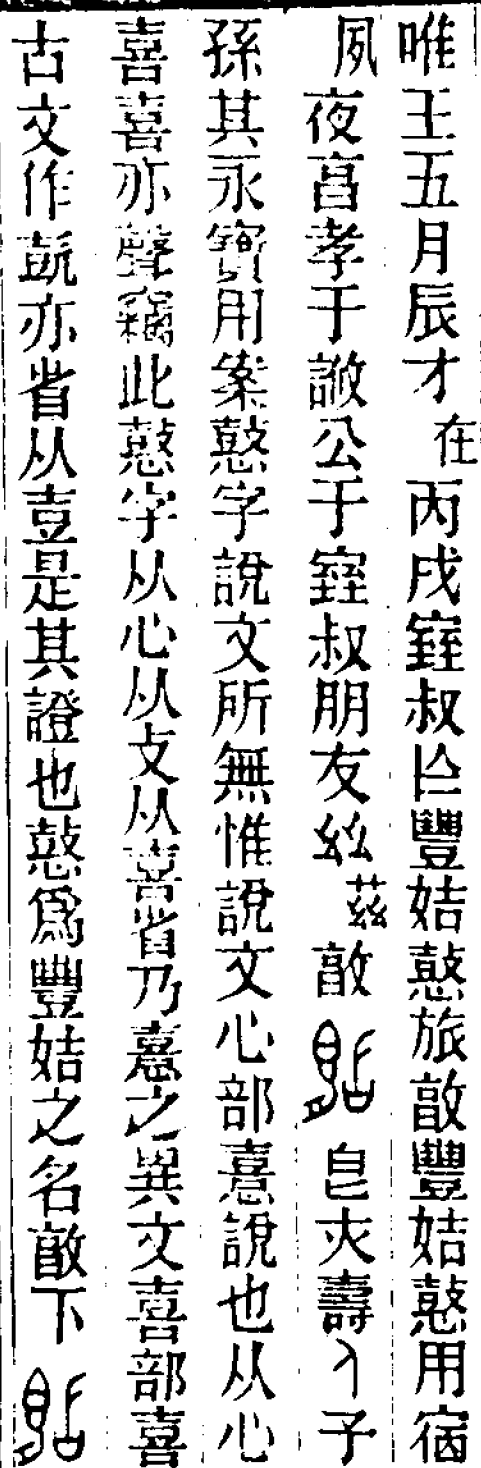 唯王五月辰才在丙戌𡫳叔𠈌豐姞憼旅𣪘豐姞憼用宿
夙夜亯孝于諔公于𡫳叔朋友𢆶茲𣪘皀夾壽人子
孫其永寶用案憼字說文所無惟說文心部憙說也从心
喜喜亦聲竊此憼字从心从攴从喜省乃憙之異文喜部喜
古文作歖亦省从壴是其證也憼爲豐姞之名𣪘下